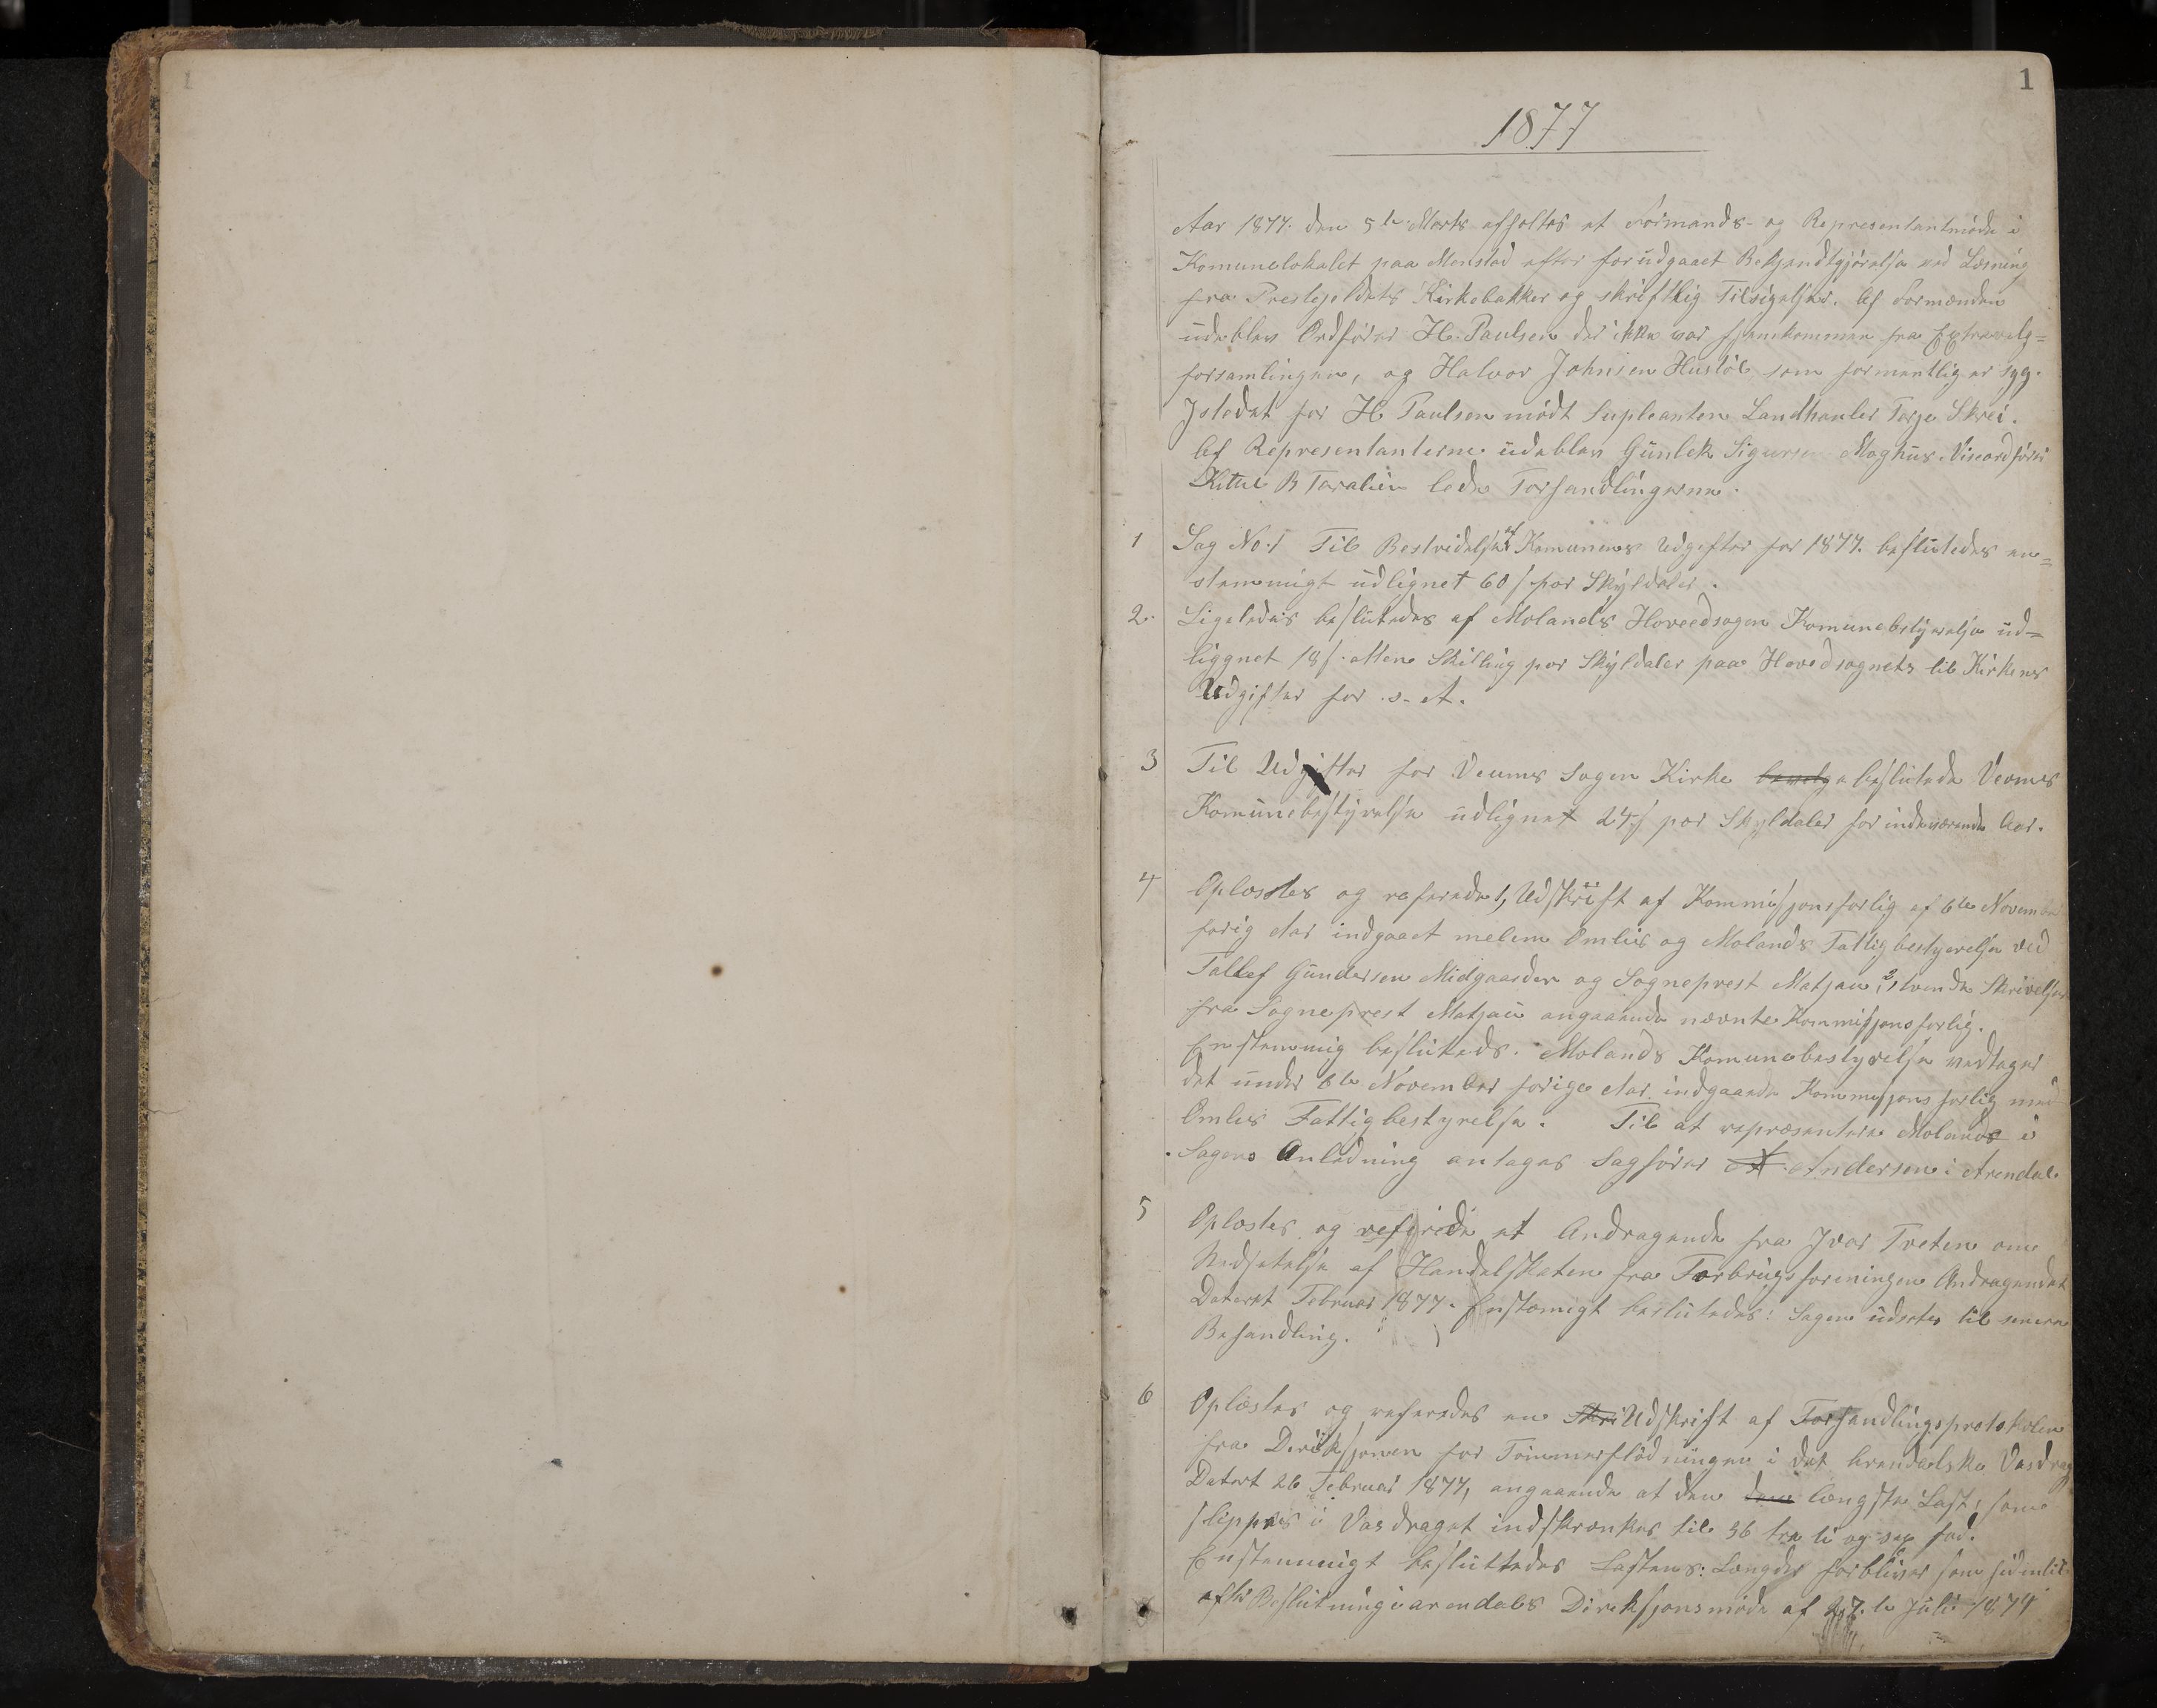 1
1877
Aar 1877. den 5te Marts afholtes et Formands- og Representantmøde i
Komunelokalet paa Monstad efter forudgaaet Bekjendtgjørelse ved Læsning
fra Prestegeldets Kirkebakker og skriftlig Tilsigelser. Af Formændene
udeblev Ordfører H. Paulsen der ikke var hjemkommen fra Extravalg=
forsamlingen, og Halvor Johnsen Husløl som formentlig er syg.
Istedet for H Paulsen mødt Supleanten Landhanler Torje Skrei.
Af Representanterne udeblev Gunlek Sigursen Moghus. Viseordfører
Kittil B Taralien lede Forhandlingerne.
1 Sag No. 1 Til Bestridelse af Komunens Udgifter for 1877. beslutedes en=
stemmigt udlignet 60 s por Skyldaler.
2. Ligeledes beslutedes af Molands Hovedsogen Komunebestyrelse ud=
liggnet 18 s. atten Skilling por Skyldaler paa Hovedsognets til Kirkens
Udgifter for s. A.
3 Til Udgifter for Veums Sogen Kirke beslutede Veumes
Komunebestyrelse udlignet 24 s por Skyldaler for indeværende Aar.
4 Oplæstes og referedes 1, Udskrift af Kommisjonsforlig af 6te November
forig Aar indgaaet melem Omlis og Molands Fattigbestyerelse ved
Tallef Gundersen Midgaarden og Sogneprest Matjau, 2, tvende Skrivelser
fra Sogneprest Matjau angaaende nævnte Kommisjonsforlig.
Enstemmig besluteds. Molands Komunebestyrelse vedtager
det under 6te November forige Aar indgaaede Kommisjonsforlig med
Omlis Fattigbestyrelse. Til at repræsentere Molands i
Sagens Anledning antages Sagfører A. Andersen i Arendal
5 Oplæstes og referede et Andragende fra Ivar Tveten om
Nedsetelse af Handelskaten fra Forbrugsforeningen Andragendet
Dateret Februar 1877. Enstemigt beslutedes: Sagen udsetes til senere
Behandling.
6 Oplæstes og referedes en Udskrift af Forhandlingsprotokolen
fra Direksjonen for Tømmerflødningen i det Arendalske Vasdrag
Datert 26 Februar 1877, angaaende at den længste Last, som
slippes i Vasdraget indskrænkes til 36 tre ti og sex fod.
Enstemmigt besluttedes Lastens: Længder forbliver som sidentil
efter Beslutning i Arendals Direksjonsmøde af 27.de Juli 1874